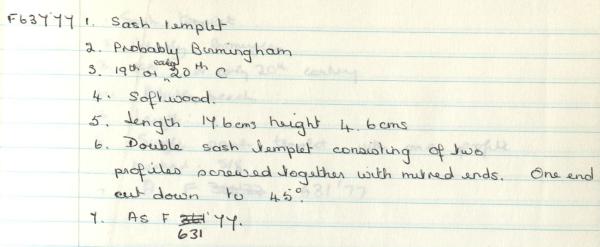 F637'77 1. Sash templet
2. Probably Birmingham
3. 19th or early 20th C
4. Softwood.
5. Length 17.6cms height 4.6cms
6. Double sash templet consisting of two
profiles screwed together with mitred ends. One end
cut down to 45°.
7. As F 361'77.
631